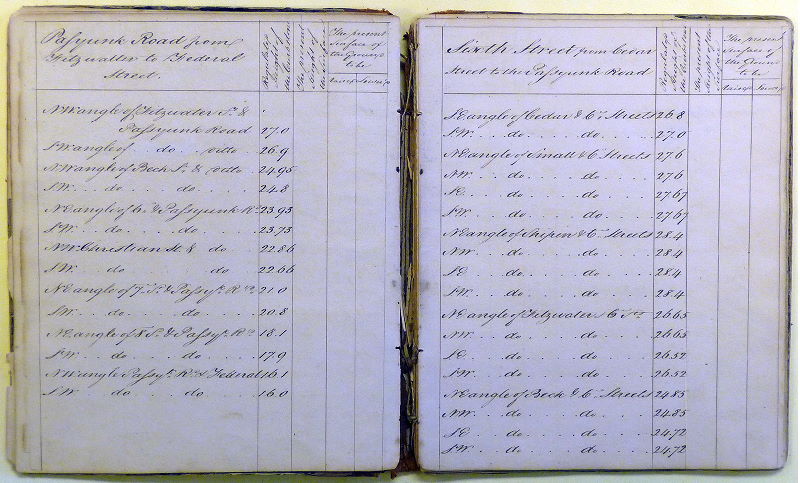 Passyunk Road from
Fitzwalter to Federal
Street.
Regulated
height of
the Curbstone
The present
height of
The present
surface of
the Ground
to be
Raised Lowered
NW angle of Fitzwater St. &
Passyunk Road 27.0
SW angle of . do . ditto . 26.9
NW angle of Beck St. & ditto . 24.95
SW . . do . . . . do . . . . 24.8
NE angle of 6 & Passyunk Rd 23.93
SW . . do . . . . do . . . . 23.73
NW Christian St. & do . . 22.86
SW . . do do . . 22.66
NE angle of 7 St. & Passyk. Rd. 21.0
SW . . do . . . . do . . . . 20.8
NE angle of 8 St. & Passyk. Rd. 18.1
SW . . do . . . . do . . . . 17.9
NW angle Passyk. Rd. & Federal 16.1
SW . . do . . . . do . . . . 16.0
Sixth Street from Cedar
Street to the Passyunk Road
Regulated
height of
the Curbstone
The present
height of the
The present
surface of
the Ground
to be
Raised Lower
SE angle of Cedar & 6th Streets 26.8
SW . . do . . . . do . . . . 27.0
NE angle of Small & 6th Streets 27.6
NW . . do . . . . do . . . . 27.6
SE . . do . . . . do . . . . 27.67
SW . . do . . . . do . . . . 27.67
NE angle of Shipen & 6th Streets 28.4
NW . . do . . . . do . . . . 28.4
SE . . do . . . . do . . . . 28.4
SW . . do . . . . do . . . . 28.4
NE angle of Fitzwater & 6 Sts 26.65
NW . . do . . . . do . . . . 26.65
SE . . do . . . . do . . . . 26.52
SW . . do . . . . do . . . . 26.52
NE angle of Beck & 6th Streets 24.85
NW . . do . . . . do . . . . 24.85
SE . . do . . . . do . . . . 24.72
SW . . do . . . . do . . . . 24.72